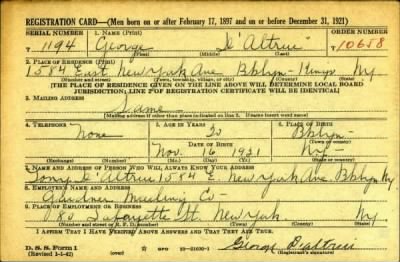 REGISTRATION CARD—(Men born on or after February 17, 1897 and on or before December 31, 1921)
SERIAL NUMBER 1. NAME (Print) ORDER NUMBER
T 1194 George D'Altrui T 10658
(First) (Middle) (Last)
2. PLACE OF RESIDENCE (Print)
1584 East New York Ave Bklyn - Kings Ny
(Number and street) (Town, township, village, or city) (County) (State)
[THE PLACE OF RESIDENCE GIVEN ON THE LINE ABOVE WILL DETERMINE LOCAL BOARD
JURISDICTION; LINE 2 OF REGISTRATION CERTIFICATE WILL BE IDENTICAL]
3. MAILING ADDRESS
Same
[Mailing address if other than place indicated on line 2. If same insert word same]
4. TELEPHONE 5. AGE IN YEARS 6. PLACE OF BIRTH
None 20 Bklyn
DATE OF BIRTH (Town or county)
Nov. 16 1921 Ny
(Exchange) (Number) (Mo.) (Day) (Yr.) (State or country)
7. NAME AND ADDRESS OF PERSON WHO WILL ALWAYS KNOW YOUR ADDRESS
1584 E. New York Ave Bklyn Ny
8. EMPLOYER'S NAME AND ADDRESS
Co -
9. PLACE OF EMPLOYMENT OR BUSINESS
180 Lafayette St. New York. Ny
(Number and street or R. F. D. number) (Town) (County) (State)
I AFFIRM THAT I HAVE VERIFIED ABOVE ANSWERS AND THAT THEY ARE TRUE.
D. S. S. Form 1
(Revised 1-1-42) GPO 16—21630-1 George D'altrui
(Registrant's signature)